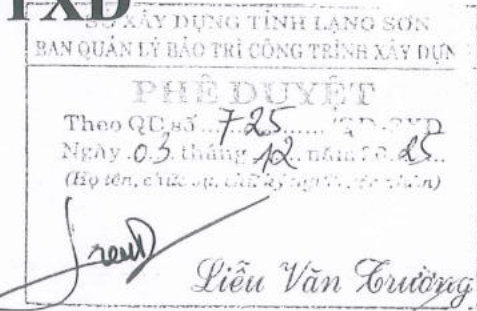 TXD
SỞ XÂY DỰNG TỈNH LẠNG SƠN
BAN QUẢN LÝ BẢO TRÌ CÔNG TRÌNH XÂY DỰN
PHÊ DUYỆT
Theo QĐ số ... 725 ...... /QĐ-SXD
Ngày . 03 . tháng . 12 .. năm 20 . 25 ..
(Họ tên, chức vụ, chữ ký
Liễu Văn Trường